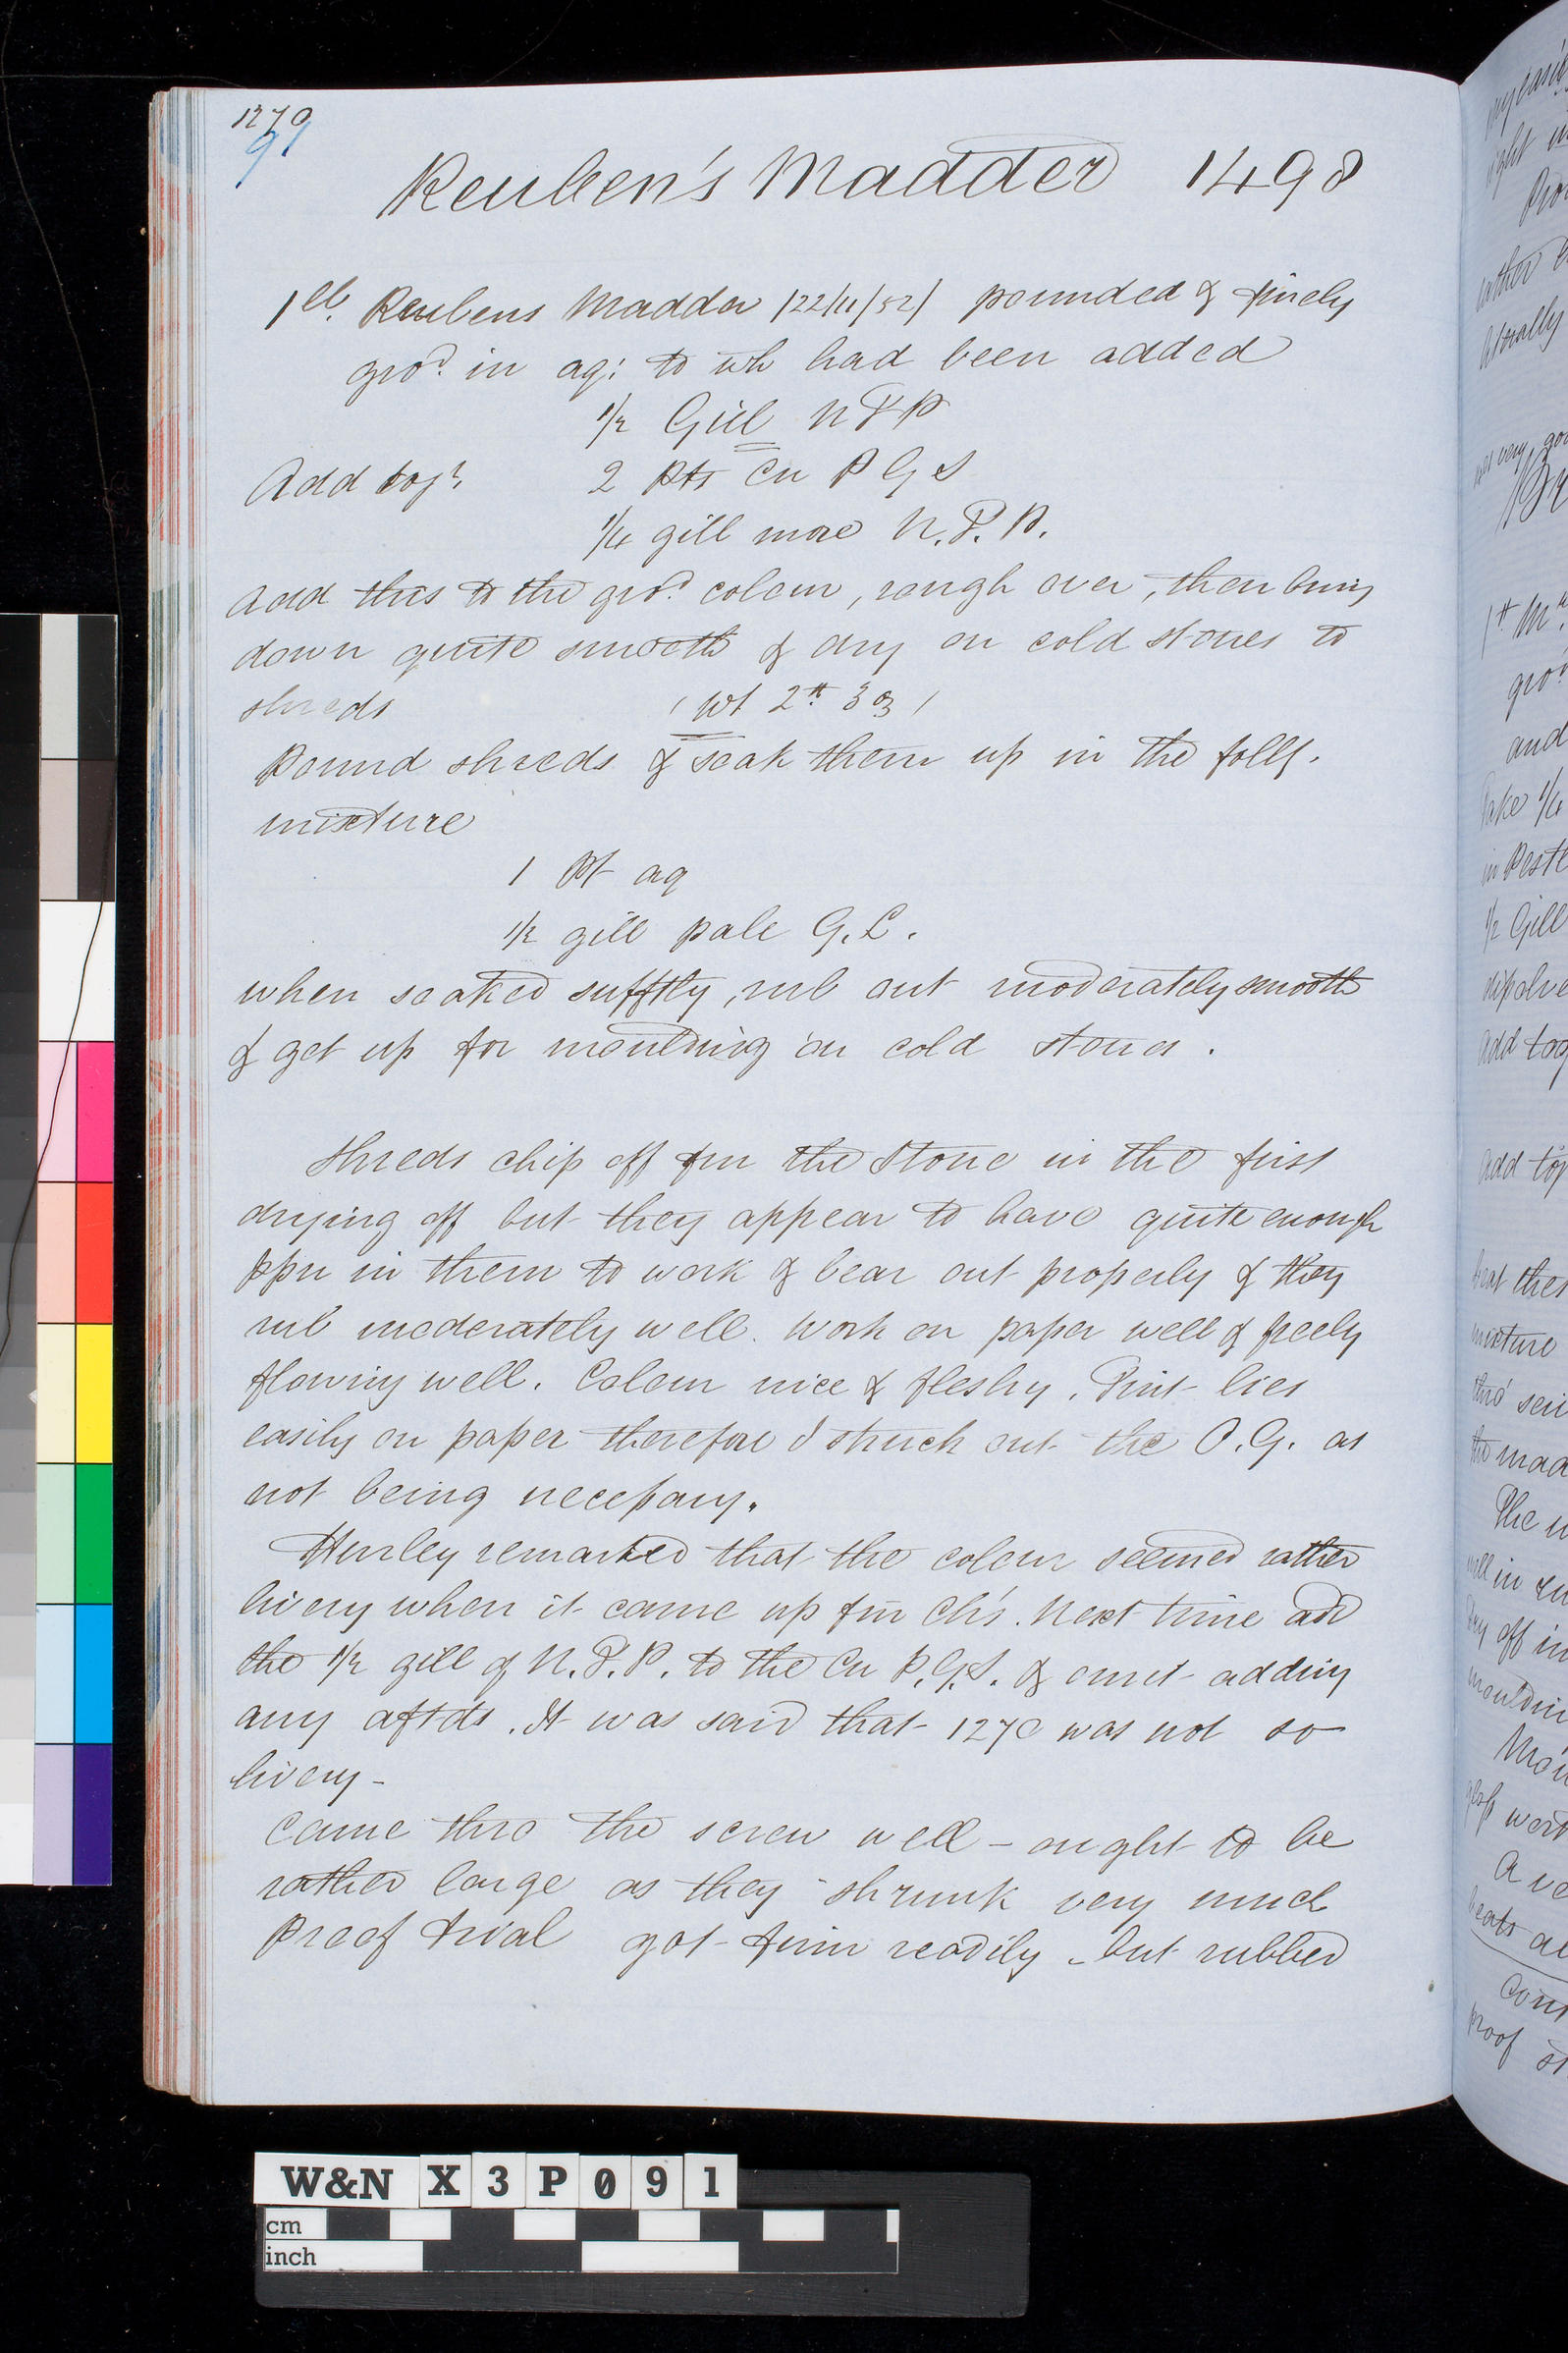 1270
91
Reuben's Madder 1498
1 lb. Reubens Madder /22/11/52/ pounded & finely
gro.d in aq: to wh had been added
1/2 Gill N P P
Add tog.r 2 pts Cu P G S
1/4 gill more N. P. P.
Add this to the gro.d colour, rough over, then bring
down quite smooth & dry on cold stones to
shreds / Wt 2 lb 3 oz /
Pound shreds & soak them up in the follg.
mixture
1 Pt aq
1/2 gill pale G. L.
when soaked sufftly, rub out moderately smooth
& get up for moulding on cold stones.
Shreds chip off fm the stone in the first
drying off but they appear to have quite enough
ppn in them to work & bear out properly & they
rub moderately well. Work on paper well & freely
flowing well. Colour nice & fleshy. Tint lies
easily on paper therefore I struck out the O. G. as
not being necessary.
Hurley remarked that the colour seemed rather
livery when it came up fm Ch's. Next time add
the 1/2 gill of N. P. P. to the Cu P. G. S. & omit adding
any aftds. It was said that 1270 was not so
livery -
Came thro the screw well - ought to be
rather large as they shrunk very much
Proof trial got firm readily - but rubbed
W&N X 3 P 0 9 1
cm
inch